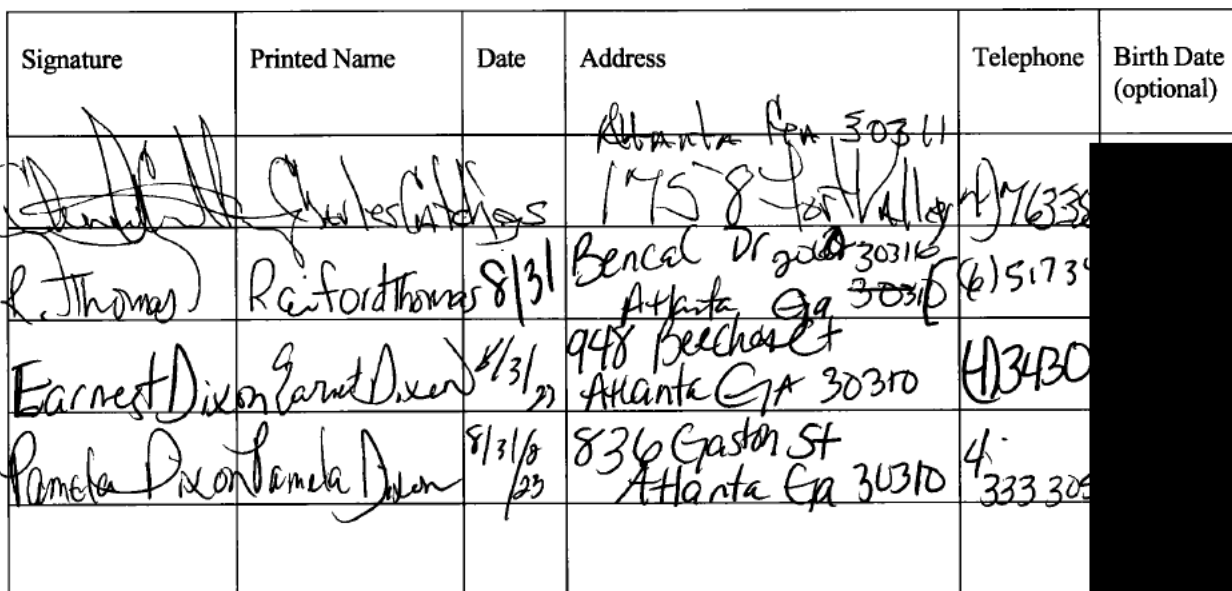 Signature Printed Name Date Address Telephone Birth Date
(optional)
Atlanta GA 30311
Charles Catchings 1758 Fort Valley
R. Thomas Raiford Thomas 8/31 Bencal Dr 30316
Atlanta Ga 30315 (6)5173
Earnest Dixon Earnest Dixon 8/31/23 948 Beechas Ct
Atlanta GA 30310 (4)3430
Pamela Dixon Pamela Dixon 8/31/23 836 Gaston St 4
Atlanta Ga 30310 333 305